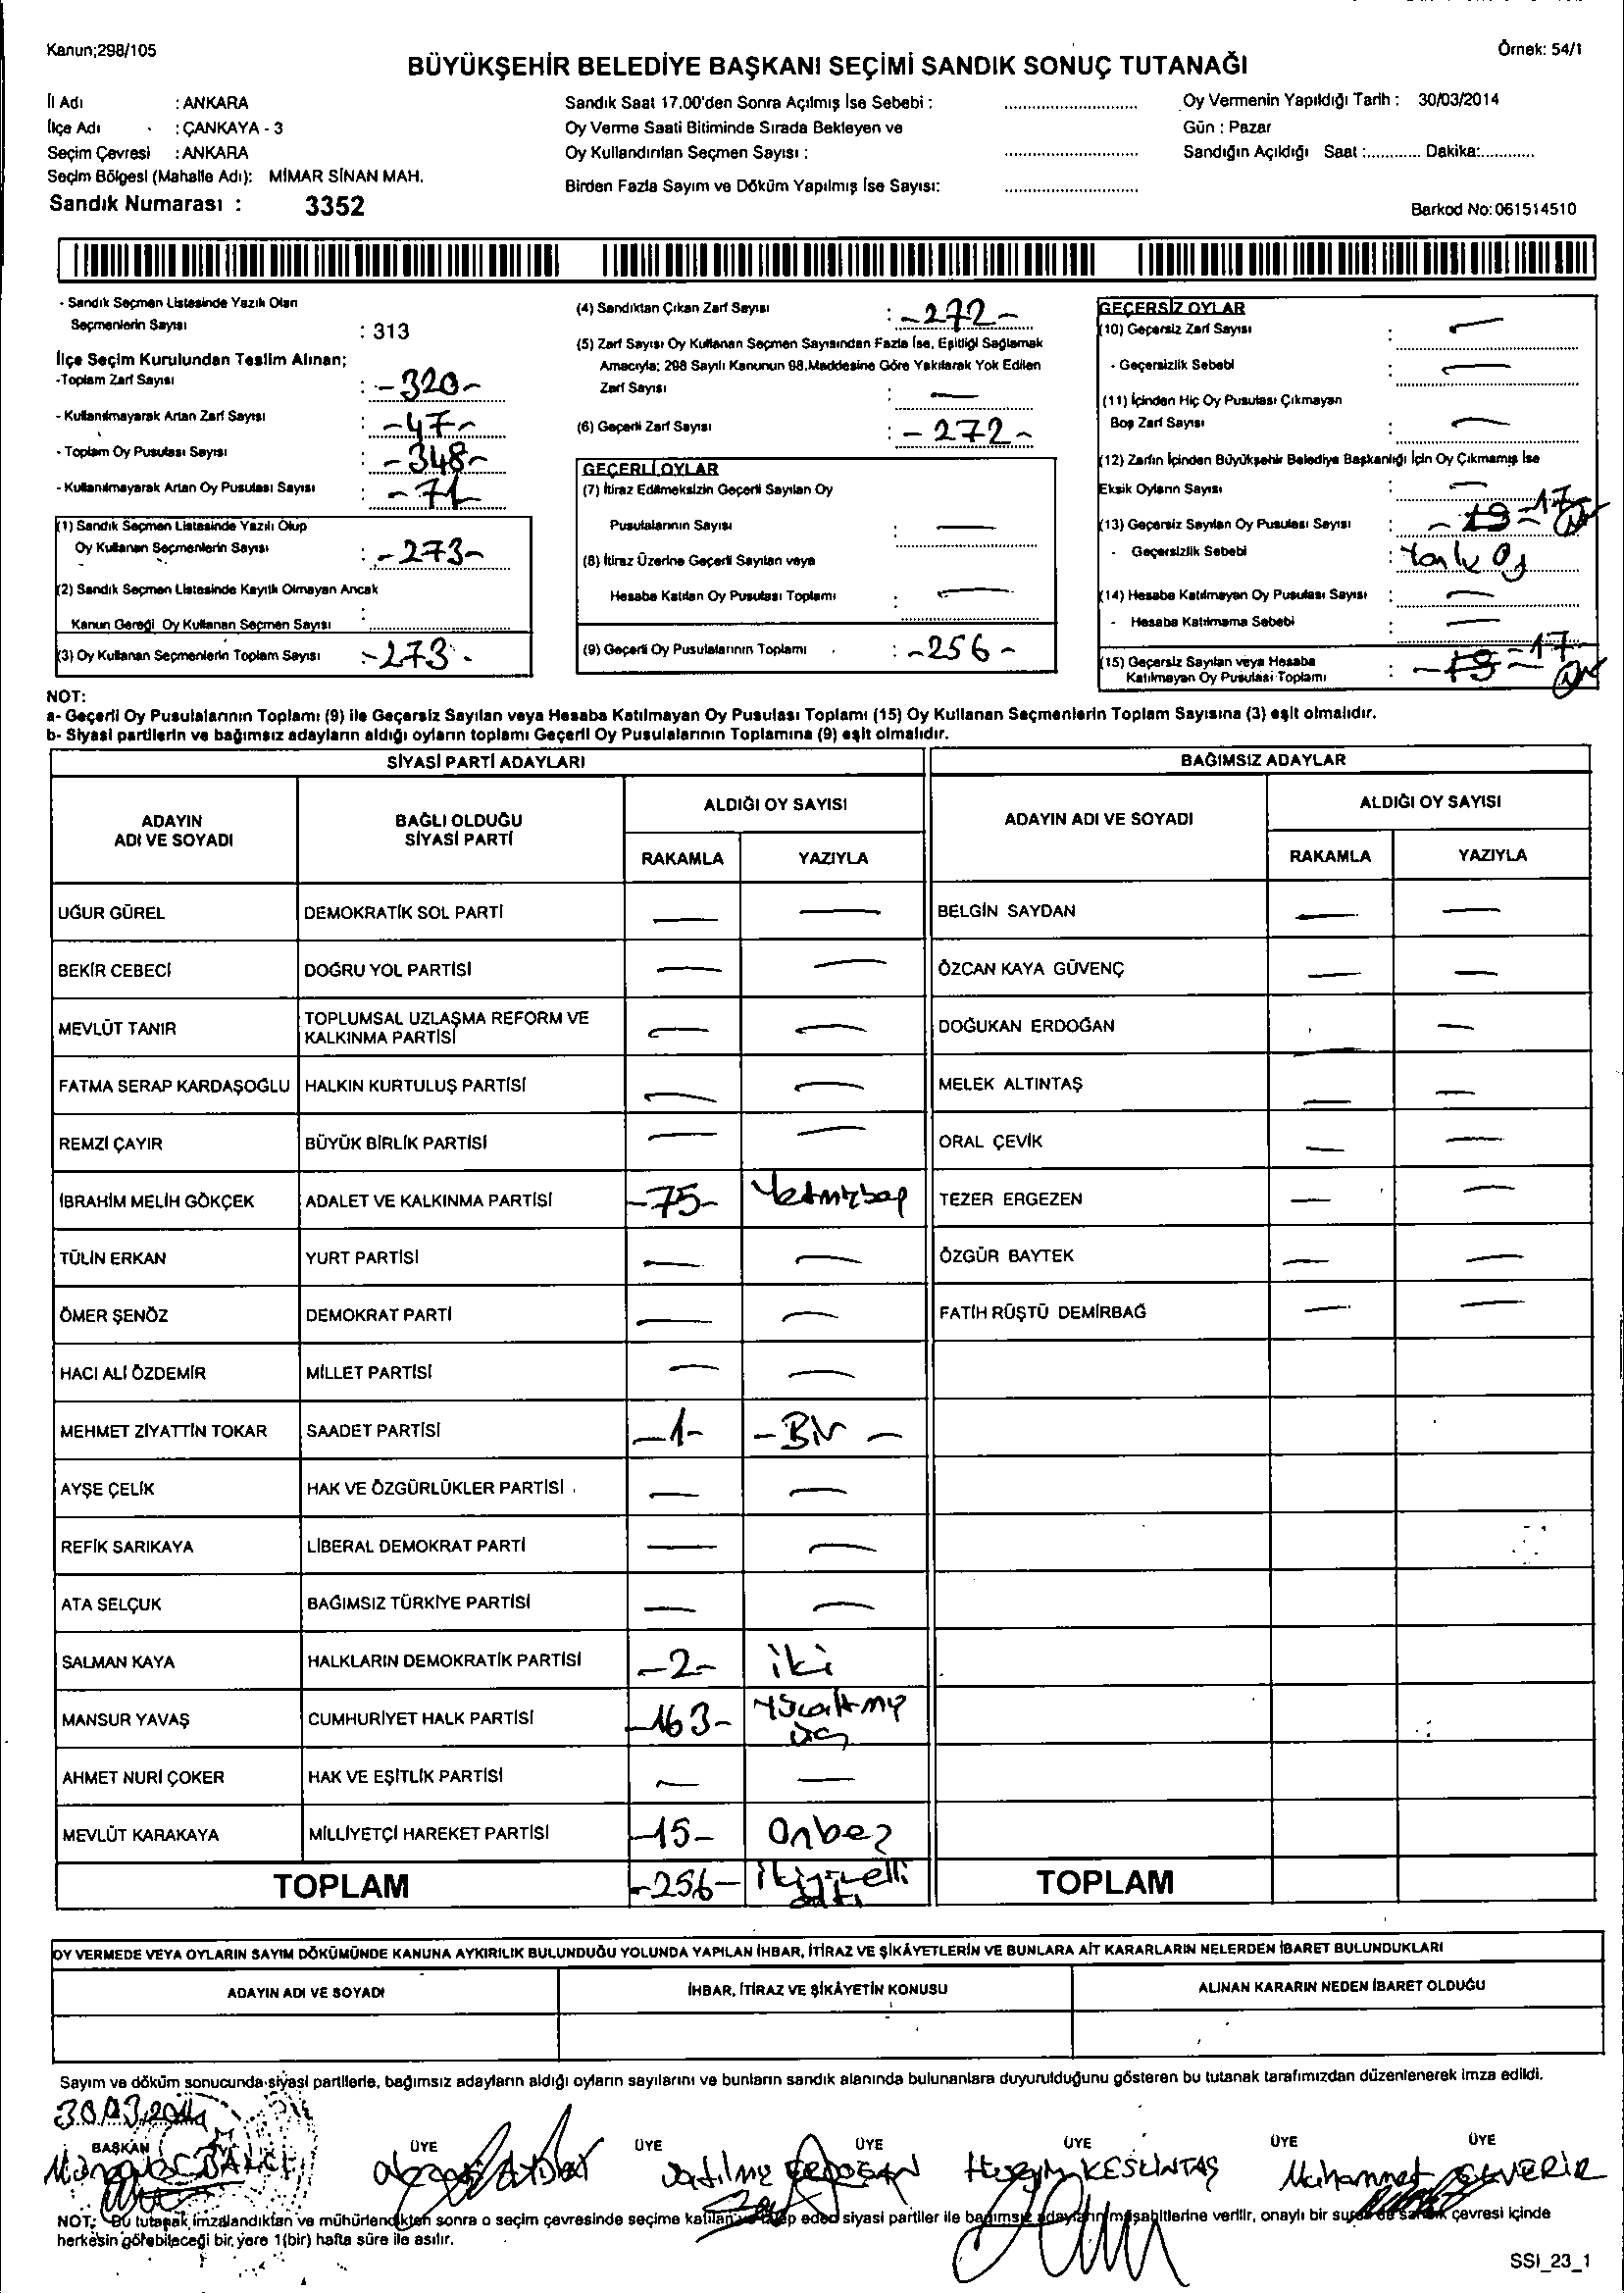 Kanun;298/105
Örnek: 54/1
BÜYÜKŞEHİR BELEDİYE BAŞKANI SEÇİMİ SANDIK SONUÇ TUTANAĞI
İl Adı : ANKARA
İlçe Adı : ÇANKAYA - 3
Seçim Çevresi : ANKARA
Seçim Bölgesi (Mahalle Adı): MİMAR SİNAN MAH.
Sandık Numarası : 3352
Sandık Saat 17.00'den Sonra Açılmış İse Sebebi :
Oy Verme Saati Bitiminde Sırada Bekleyen ve
Oy Kullandırılan Seçmen Sayısı :
Birden Fazla Sayım ve Döküm Yapılmış İse Sayısı:
Oy Vermenin Yapıldığı Tarih : 30/03/2014
Gün : Pazar
Sandığın Açıldığı Saat :............ Dakika:............
Barkod No:061514510
- Sandık Seçmen Listesinde Yazılı Olan
Seçmenlerin Sayısı : 313
İlçe Seçim Kurulundan Teslim Alınan;
-Toplam Zarf Sayısı : -320-
- Kullanılmayarak Artan Zarf Sayısı : -47-
- Toplam Oy Pusulası Sayısı : -348-
- Kullanılmayarak Artan Oy Pusulası Sayısı :
(1) Sandık Seçmen Listesinde Yazılı Olup
Oy Kullanan Seçmenlerin Sayısı : -273-
(2) Sandık Seçmen Listesinde Kayıtlı Olmayan Ancak
Kanun Gereği Oy Kullanan Seçmen Sayısı :
(3) Oy Kullanan Seçmenlerin Toplam Sayısı : -273-
(4) Sandıktan Çıkan Zarf Sayısı : -272-
(5) Zarf Sayısı Oy Kullanan Seçmen Sayısından Fazla İse, Eşitliği Sağlamak
Amacıyla; 298 Sayılı Kanunun 98.Maddesine Göre Yakılarak Yok Edilen
Zarf Sayısı : —
(6) Geçerli Zarf Sayısı : -272-
GEÇERLİ OYLAR
(7) İtiraz Edilmeksizin Geçerli Sayılan Oy
Pusulalarının Sayısı : —
(8) İtiraz Üzerine Geçerli Sayılan veya
Hesaba Katılan Oy Pusulası Toplamı : —
(9) Geçerli Oy Pusulalarının Toplamı : -256-
GEÇERSİZ OYLAR
(10) Geçersiz Zarf Sayısı : —
- Geçersizlik Sebebi : —
(11) İçinden Hiç Oy Pusulası Çıkmayan
Boş Zarf Sayısı : —
(12) Zarfın İçinden Büyükşehir Belediye Başkanlığı İçin Oy Çıkmamış İse
Eksik Oyların Sayısı : —
(13) Geçersiz Sayılan Oy Pusulası Sayısı : -17
- Geçersizlik Sebebi :
(14) Hesaba Katılmayan Oy Pusulası Sayısı : —
- Hesaba Katılmama Sebebi : —
(15) Geçersiz Sayılan veya Hesaba
Katılmayan Oy Pusulası Toplamı : -17-
NOT:
a- Geçerli Oy Pusulalarının Toplamı (9) ile Geçersiz Sayılan veya Hesaba Katılmayan Oy Pusulası Toplamı (15) Oy Kullanan Seçmenlerin Toplam Sayısına (3) eşit olmalıdır.
b- Siyasi partilerin ve bağımsız adayların aldığı oyların toplamı Geçerli Oy Pusulalarının Toplamına (9) eşit olmalıdır.
SİYASİ PARTİ ADAYLARI
BAĞIMSIZ ADAYLAR
ADAYIN
ADI VE SOYADI
BAĞLI OLDUĞU
SİYASİ PARTİ
ALDIĞI OY SAYISI
RAKAMLA YAZIYLA
ADAYIN ADI VE SOYADI
ALDIĞI OY SAYISI
RAKAMLA YAZIYLA
UĞUR GÜREL DEMOKRATİK SOL PARTİ — — BELGİN SAYDAN — —
BEKİR CEBECİ DOĞRU YOL PARTİSİ — — ÖZCAN KAYA GÜVENÇ — —
MEVLÜT TANIR TOPLUMSAL UZLAŞMA REFORM VE
KALKINMA PARTİSİ — — DOĞUKAN ERDOĞAN — —
FATMA SERAP KARDAŞOĞLU HALKIN KURTULUŞ PARTİSİ — — MELEK ALTINTAŞ — —
REMZİ ÇAYIR BÜYÜK BİRLİK PARTİSİ — — ORAL ÇEVİK — —
İBRAHİM MELİH GÖKÇEK ADALET VE KALKINMA PARTİSİ -75- Yetmişbeş TEZER ERGEZEN — —
TÜLİN ERKAN YURT PARTİSİ — — ÖZGÜR BAYTEK — —
ÖMER ŞENÖZ DEMOKRAT PARTİ — — FATİH RÜŞTÜ DEMİRBAĞ — —
HACI ALİ ÖZDEMİR MİLLET PARTİSİ — —
MEHMET ZİYATTİN TOKAR SAADET PARTİSİ -1- - Bir -
AYŞE ÇELİK HAK VE ÖZGÜRLÜKLER PARTİSİ — —
REFİK SARIKAYA LİBERAL DEMOKRAT PARTİ — —
ATA SELÇUK BAĞIMSIZ TÜRKİYE PARTİSİ — —
SALMAN KAYA HALKLARIN DEMOKRATİK PARTİSİ -2- iki
MANSUR YAVAŞ CUMHURİYET HALK PARTİSİ -163- Yüzaltmış
üç
AHMET NURİ ÇOKER HAK VE EŞİTLİK PARTİSİ — —
MEVLÜT KARAKAYA MİLLİYETÇİ HAREKET PARTİSİ -15- Onbeş
TOPLAM -256- İkiyüzelli
altı
TOPLAM
OY VERMEDE VEYA OYLARIN SAYIM DÖKÜMÜNDE KANUNA AYKIRILIK BULUNDUĞU YOLUNDA YAPILAN İHBAR, İTİRAZ VE ŞİKÂYETLERİN VE BUNLARA AİT KARARLARIN NELERDEN İBARET BULUNDUKLARI
ADAYIN ADI VE SOYADI İHBAR, İTİRAZ VE ŞİKÂYETİN KONUSU ALINAN KARARIN NEDEN İBARET OLDUĞU
Sayım ve döküm sonucunda siyasi partilerle, bağımsız adayların aldığı oyların sayılarını ve bunların sandık alanında bulunanlara duyurulduğunu gösteren bu tutanak tarafımızdan düzenlenerek imza edildi.
30.03.2014
BAŞKAN ÜYE ÜYE ÜYE ÜYE ÜYE ÜYE
BALCI ERDOĞAN Hüseyin KESKİNTAŞ Muhammet SEVERİR
NOT: Bu tutanak imzalandıktan ve mühürlendikten sonra o seçim çevresinde seçime katılan ve talep eden siyasi partiler ile bağımsız adayların müşahitlerine verilir, onaylı bir sureti de sandık çevresi içinde
herkesin görebileceği bir yere 1(bir) hafta süre ile asılır.
SSI_23_1